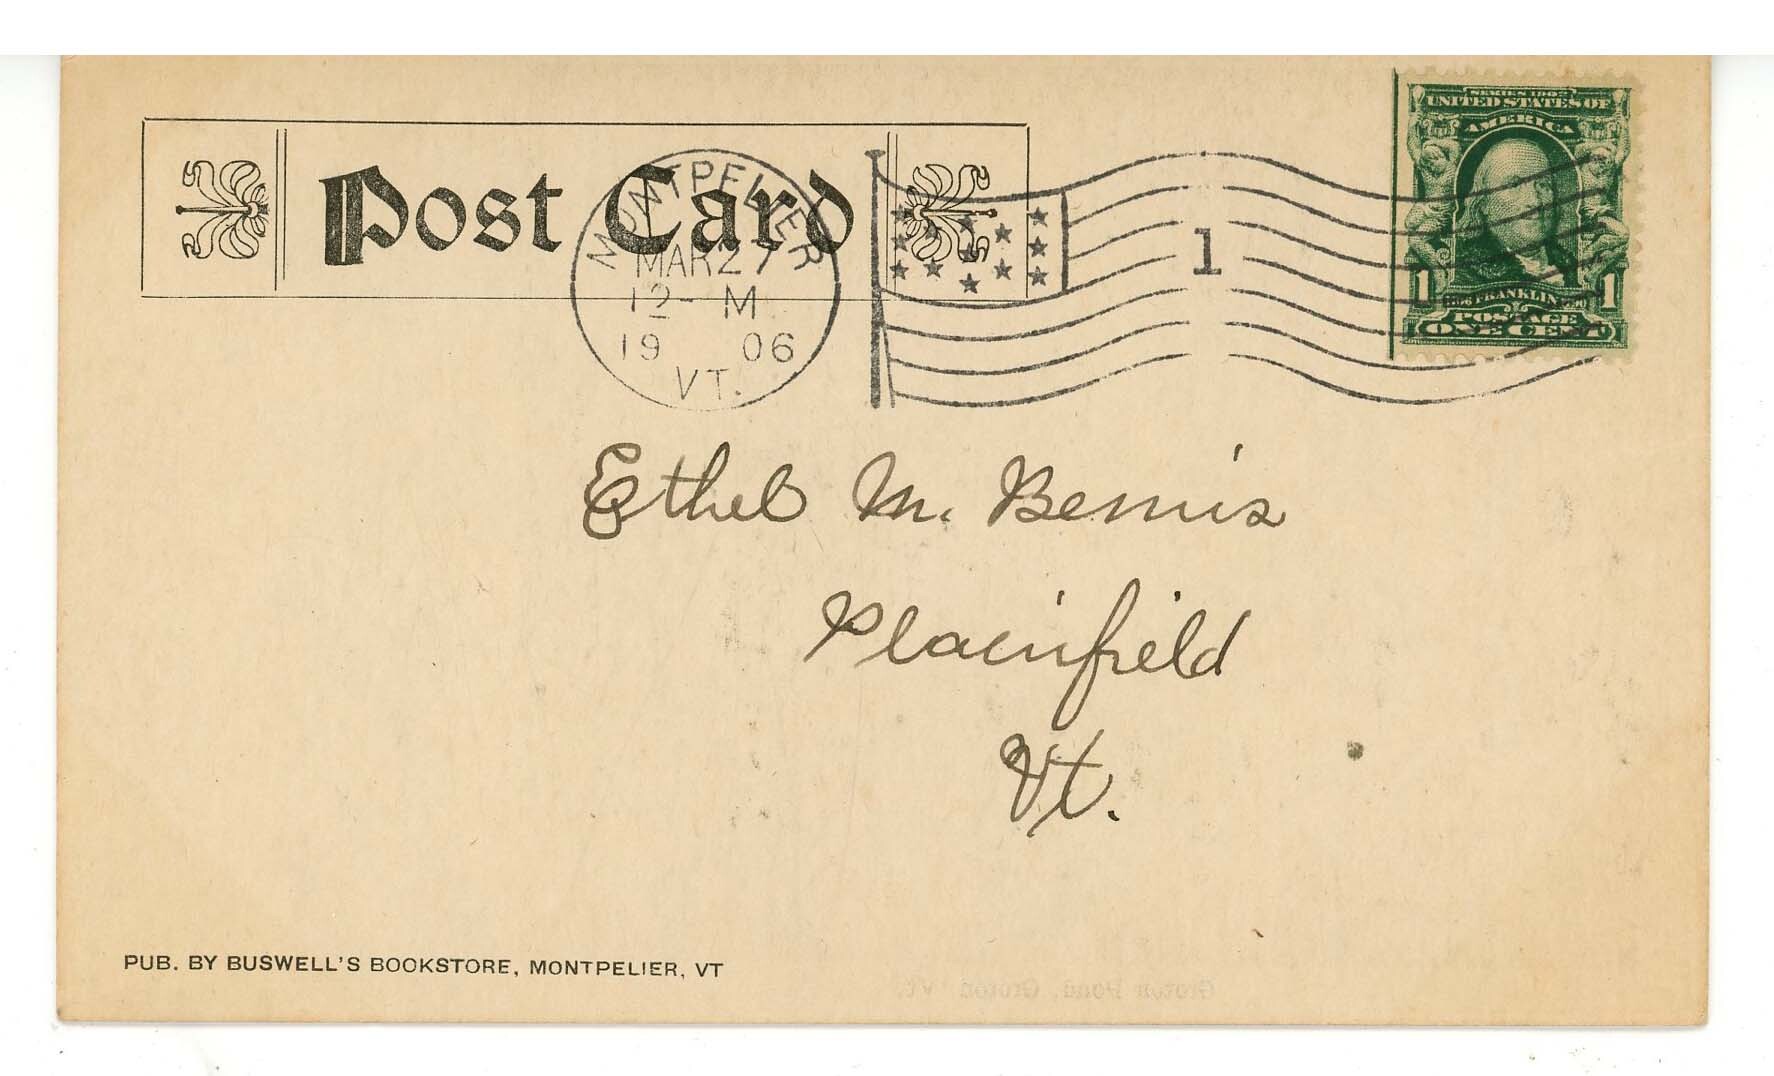 Post Card
MONTPELIER
MAR 27
12- M
1906
VT.
1
SERIES 1902
UNITED STATES OF
AMERICA
1 FRANKLIN 1
POSTAGE
ONE CENT
Ethel M. Bemis
Plainfield
Vt.
PUB. BY BUSWELL'S BOOKSTORE, MONTPELIER, VT
Groton Pond, Groton, Vt.